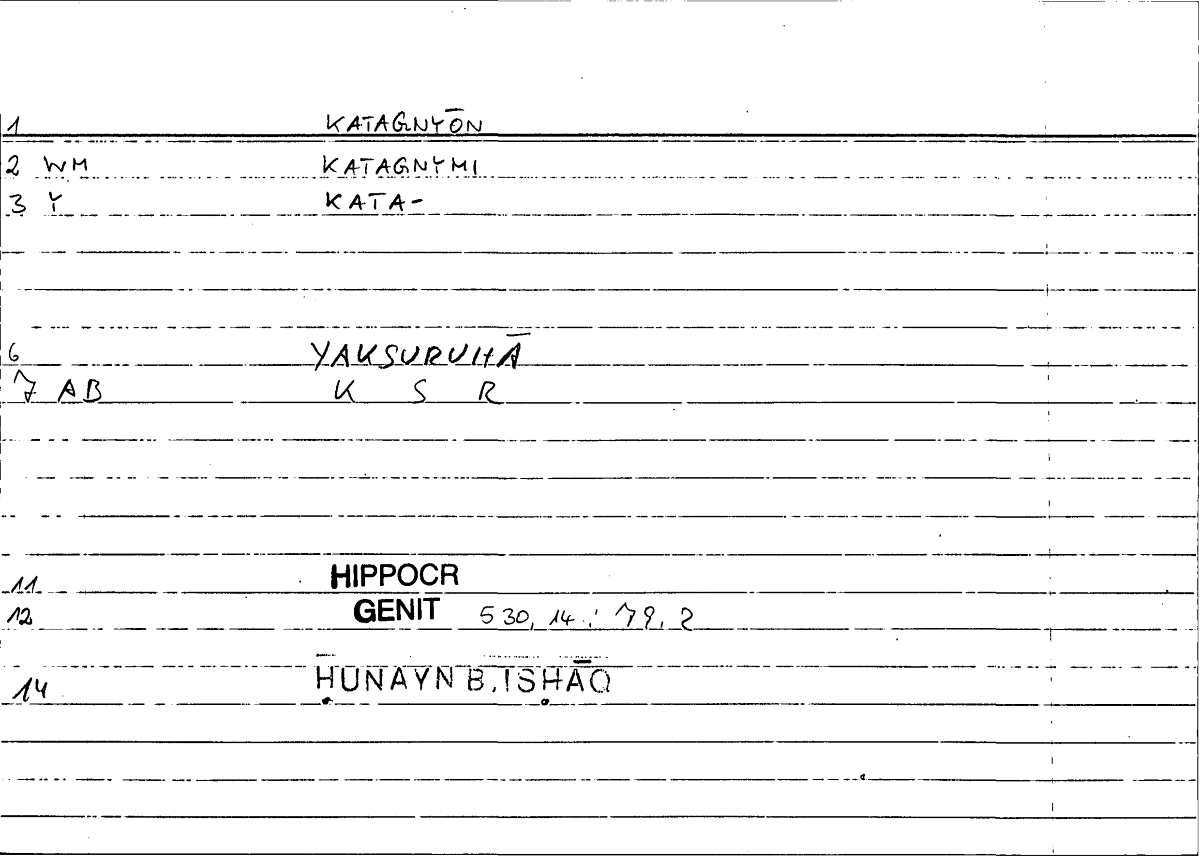 1 KATAGNYŌN
2 WM KATAGNYMI
3 Y KATA-
6 YAKSURUHĀ
7 AB K S R
11 HIPPOCR
12 GENIT 530, 14 : 79, 2
14 ḤUNAYN B. ISḤĀQ